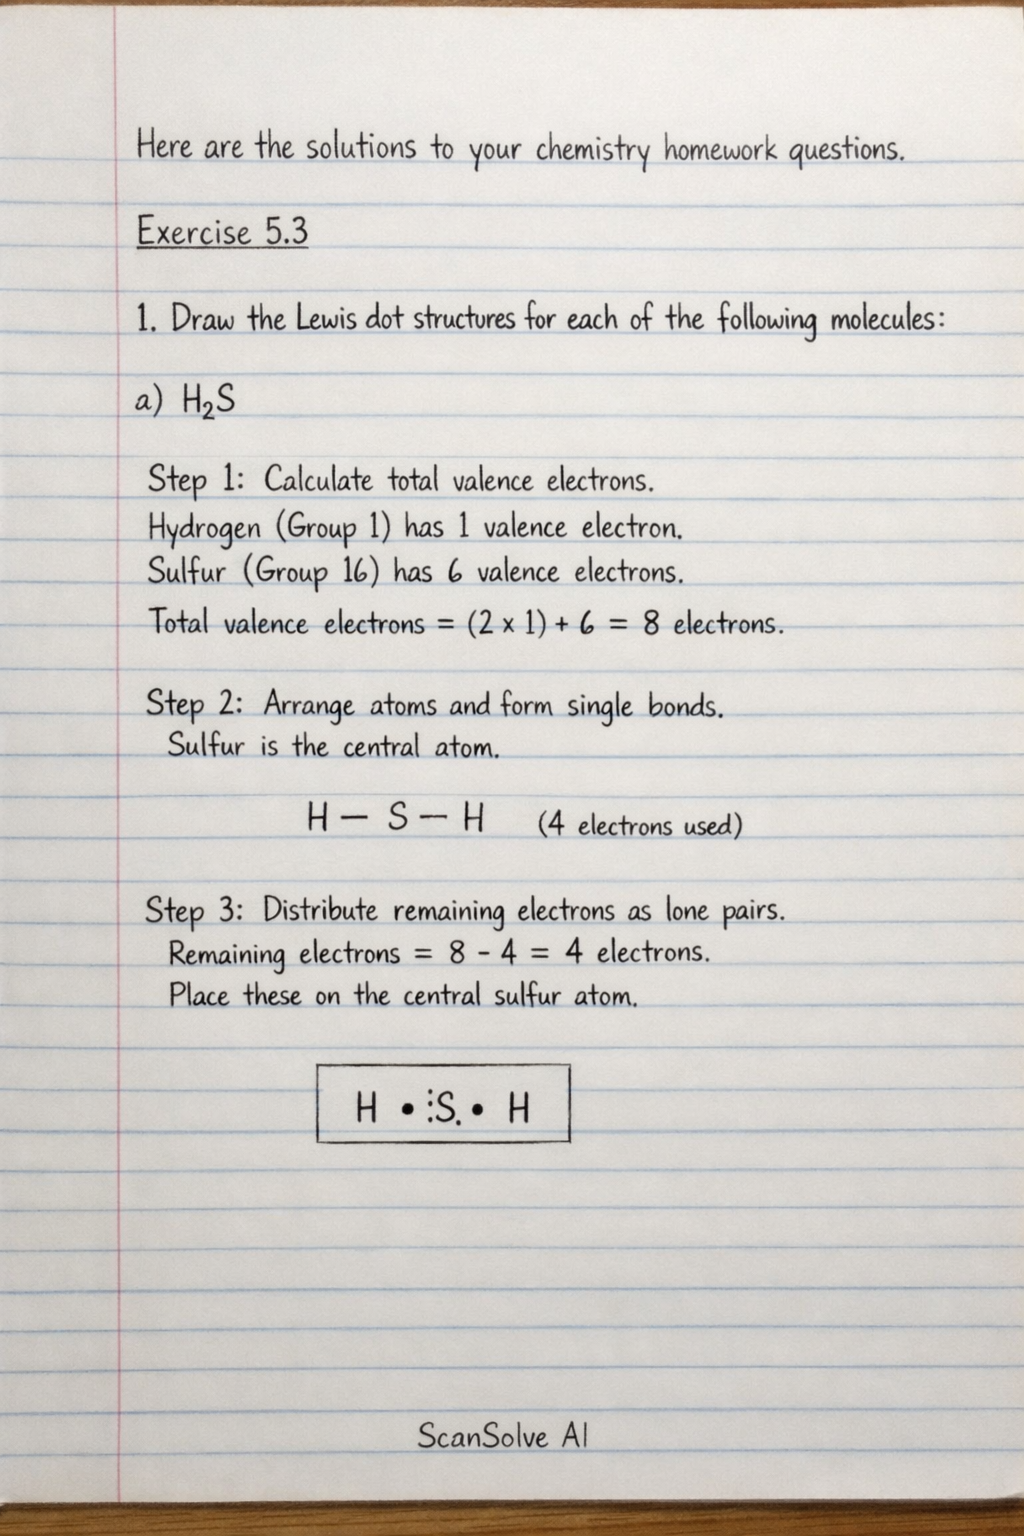 Here are the solutions to your chemistry homework questions.
Exercise 5.3
1. Draw the Lewis dot structures for each of the following molecules:
a) H₂S
Step 1: Calculate total valence electrons.
Hydrogen (Group 1) has 1 valence electron.
Sulfur (Group 16) has 6 valence electrons.
Total valence electrons = (2 x 1) + 6 = 8 electrons.
Step 2: Arrange atoms and form single bonds.
Sulfur is the central atom.
H — S — H (4 electrons used)
Step 3: Distribute remaining electrons as lone pairs.
Remaining electrons = 8 - 4 = 4 electrons.
Place these on the central sulfur atom.
H • :̇S. • H
ScanSolve AI